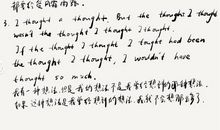 3. I thought a thought. But the thought I thought
wasn't the thought I thought I thought.
If the thought I thought I tought had been
the thought I thought, I wouldn't have
thought so much.
我有一种想法,但是我的想法不是我曾经想到的那种想法.
如果这种想法是我曾经想到的想法,我就不会想那么多了.